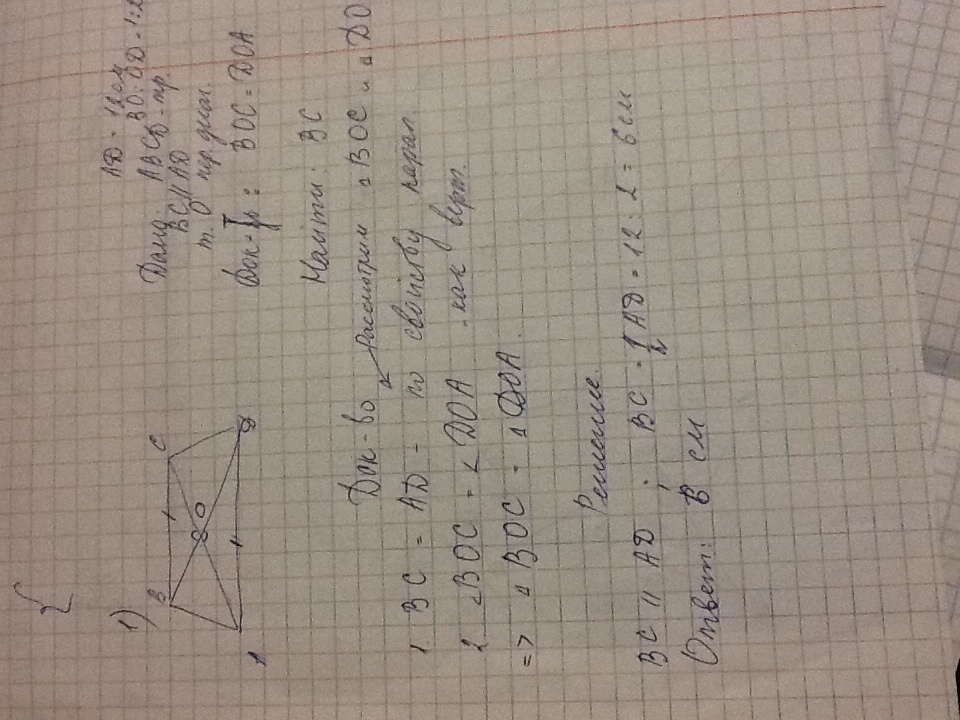 1)
B C
O
A D
AD = 12 см
Дано: ABCD - тр.
BC || AD BO:OD = 1:2
т. O пер. диаг.
Док-ть: BOC = DOA
Найти: BC
Док-во Рассмотрим △ BOC и △ DO
1. BC = AD - по свойству парал.
2 ∠BOC = ∠DOA - как верт.
=> △ BOC = △ DOA.
Решение.
BC || AD. BC = 1/2 AD = 12 : 2 = 6 см
Ответ: 6 см